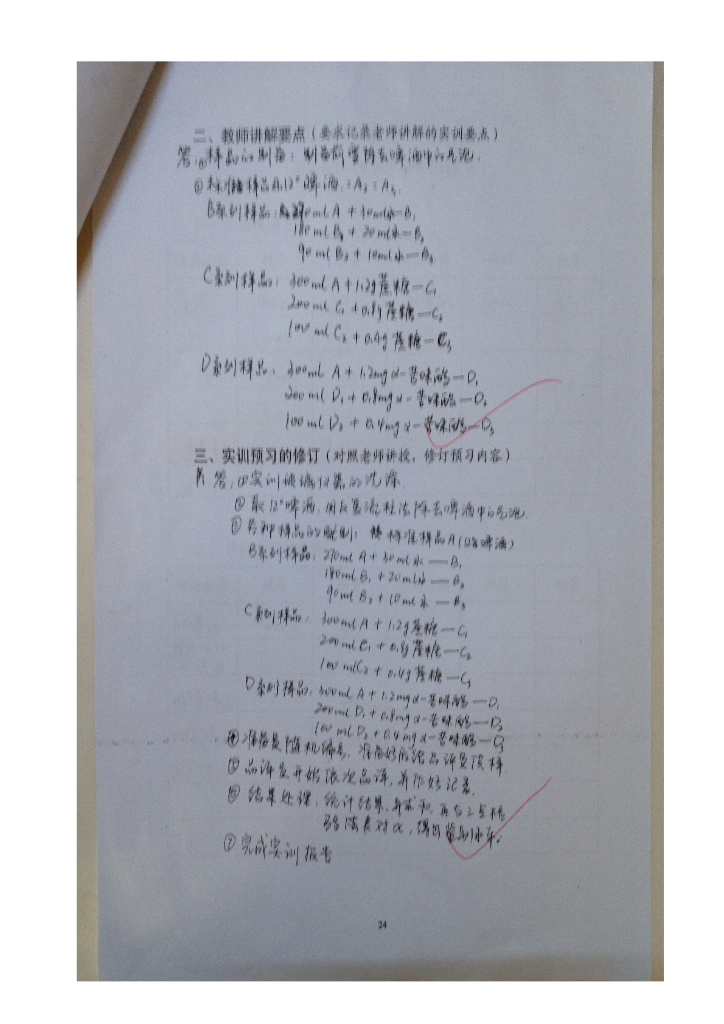 二、教师讲解要点（要求记录老师讲解的实训要点）
答：①样品的制备：制备前需预去啤酒中的气泡.
②标准样品A:12°啤酒.=A₂=A₃.
B系列样品：270mL A + 30ml水—B₁
180ml B₁ + 20ml水—B₂
90ml B₂ + 10ml水—B₃
C系列样品：300ml A + 1.2g蔗糖—C₁
200ml C₁ + 0.8g蔗糖—C₂
100ml C₂ + 0.4g蔗糖—C₃
D系列样品：300ml A + 1.2mg α-苦味酸—D₁
200ml D₁ + 0.8mg α-苦味酸—D₂
100ml D₂ + 0.4mg α-苦味酸—D₃
三、实训预习的修订（对照老师讲授，修订预习内容）
答：①实训玻璃仪器的洗涤
②取12°啤酒，用反复流注法除去啤酒中的气泡.
③各种样品的配制：标准样品A(12°啤酒)
B系列样品：270ml A + 30ml水—B₁
180ml B₁ + 20ml水—B₂
90ml B₂ + 10ml水—B₃
C系列样品：300ml A + 1.2g蔗糖—C₁
200ml C₁ + 0.8g蔗糖—C₂
100ml C₂ + 0.4g蔗糖—C₃
D系列样品：300ml A + 1.2mg α-苦味酸—D₁
200ml D₁ + 0.8mg α-苦味酸—D₂
100ml D₂ + 0.4mg α-苦味酸—D₃
④准备员随机编号，准备好的给品评员供样
⑤品评员开始依次品评，并作好记录.
⑥结果处理，统计结果，并求和，再与二点检
验法表对α，得出鉴别水平.
⑦完成实训报告
24